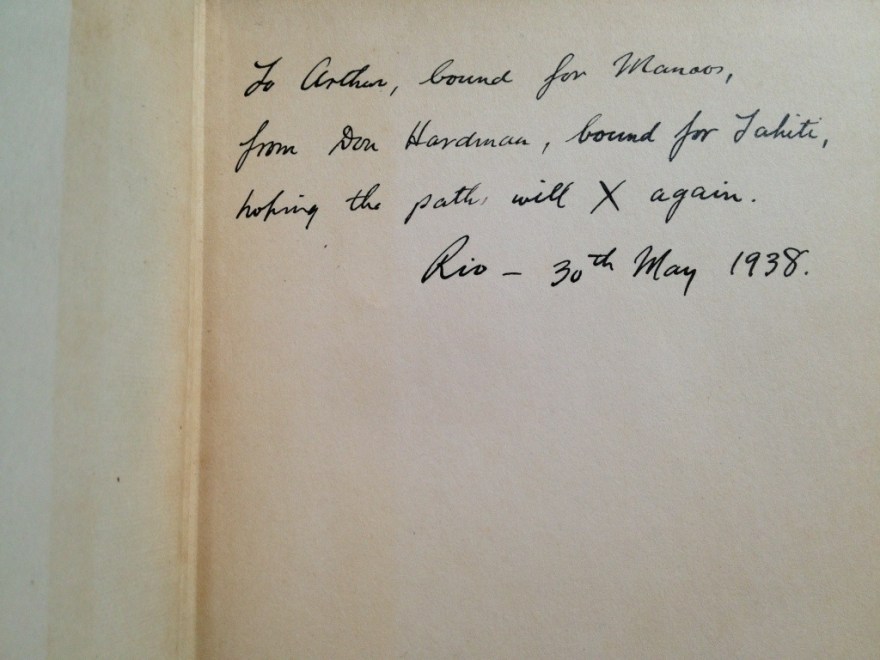 To Arthur, bound for Manaos,
from Don Hardman, bound for Tahiti,
hoping the paths will X again.
Rio – 30th May 1938.